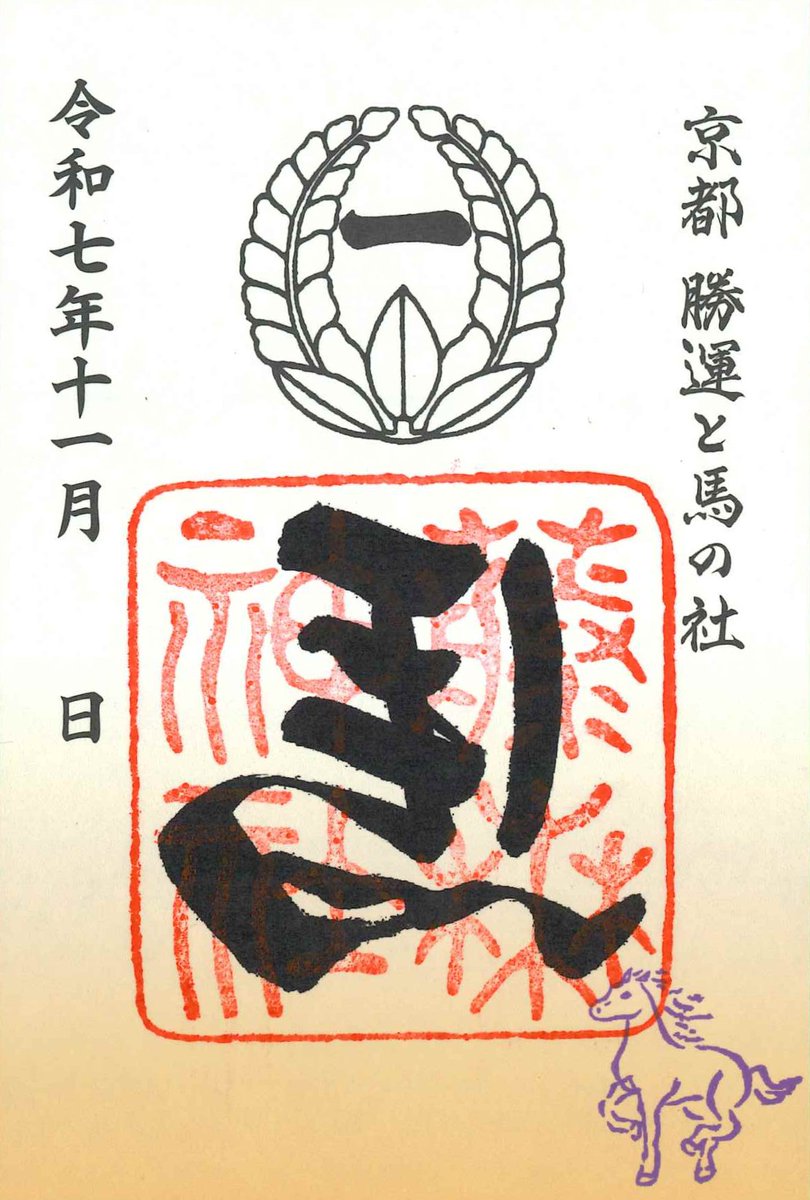 京都 勝運と馬の社
一
馬
藤森
神社
令和七年十一月 日